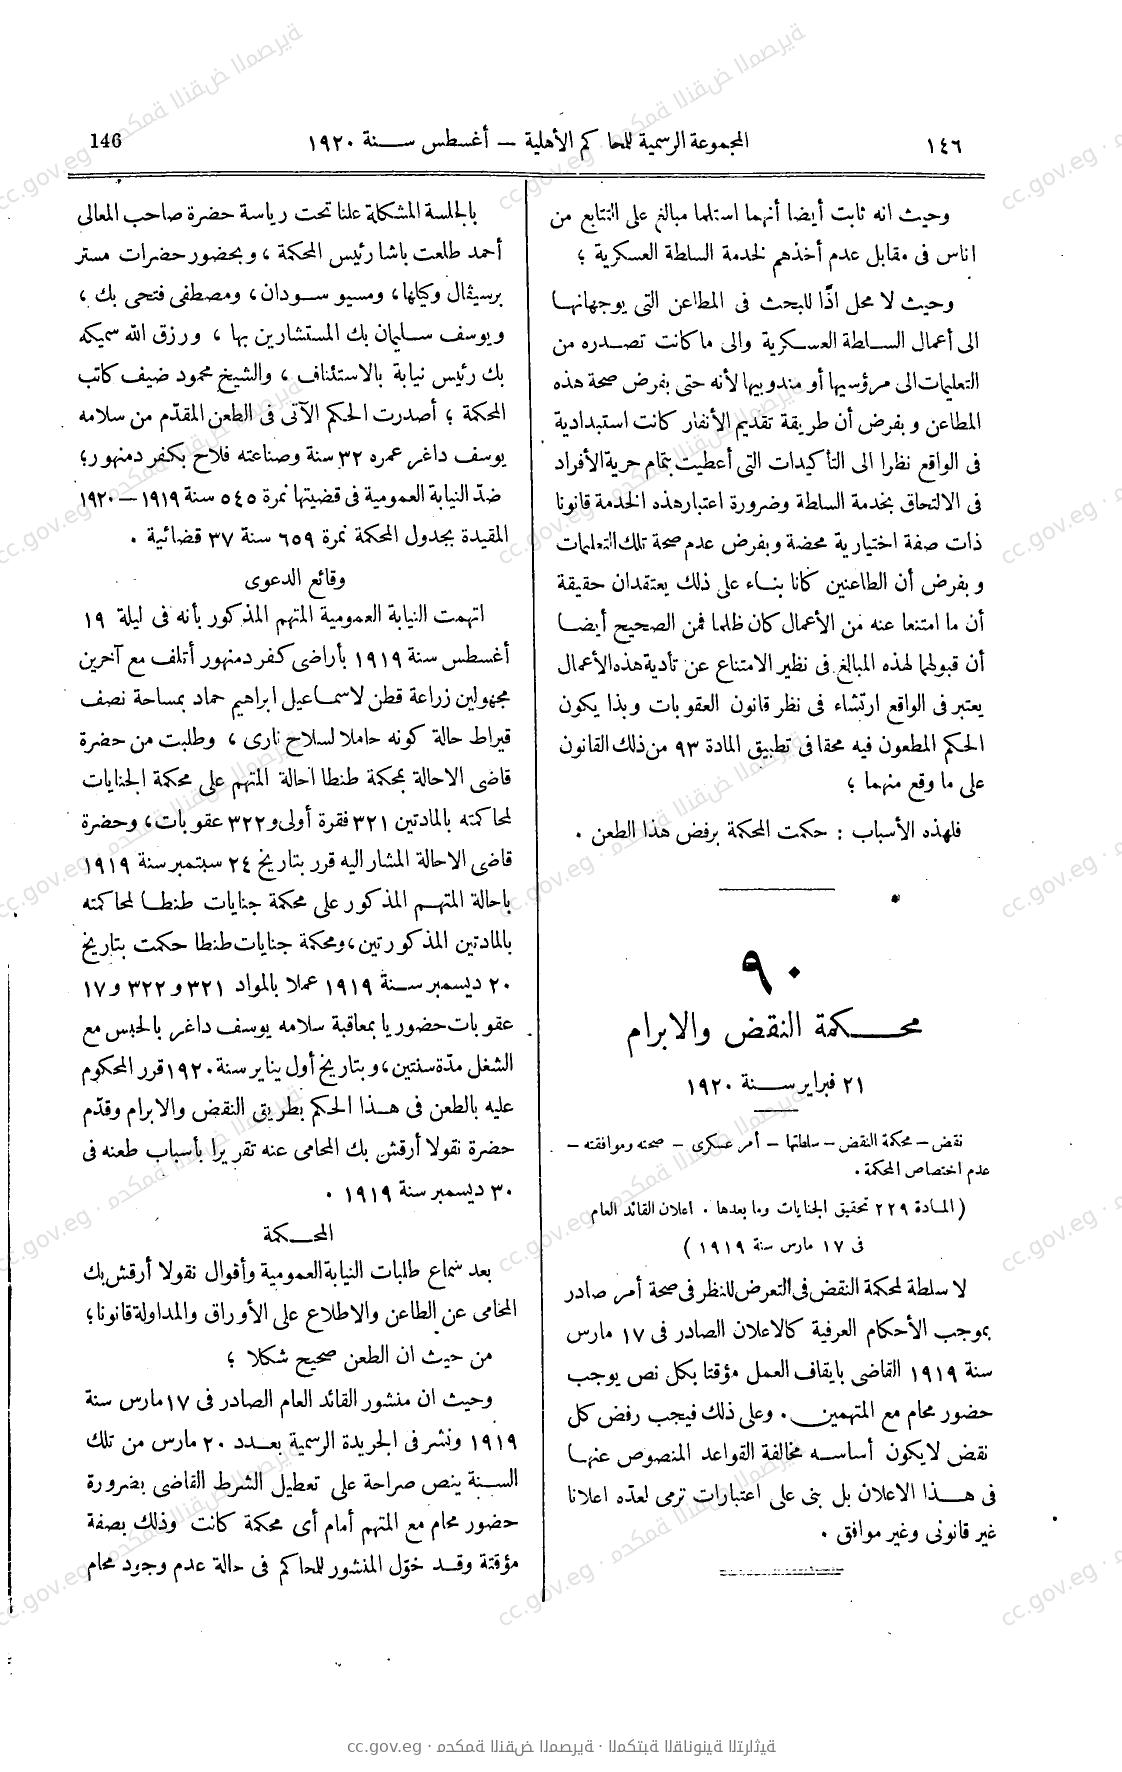 ١٤٦
المجموعة الرسمية للمحاكم الأهلية – أغسطس سنة ١٩٢٠
146
وحيث انه ثابت أيضا أنهما استلما مبالغ على التتابع من
اناس فى مقابل عدم أخذهم لخدمة السلطة العسكرية ؛
وحيث لا محل اذًا للبحث فى المطاعن التى يوجهانها
الى أعمال السلطة العسكرية والى ما كانت تصدره من
التعليمات الى مرؤسيها أو مندوبيها لأنه حتى بفرض صحة هذه
المطاعن وبفرض أن طريقة تقديم الأنفار كانت استبدادية
فى الواقع نظرا الى التأكيدات التى أعطيت بتمام حرية الأفراد
فى الالتحاق بخدمة السلطة وضرورة اعتبار هذه الخدمة قانونا
ذات صفة اختيارية محضة وبفرض عدم صحة تلك التعليمات
وبفرض أن الطاعنين كانا بناء على ذلك يعتقدان حقيقة
أن ما امتنعا عنه من الأعمال كان ظلما فمن الصحيح أيضا
أن قبولهما لهذه المبالغ فى نظير الامتناع عن تأدية هذه الأعمال
يعتبر فى الواقع ارتشاء فى نظر قانون العقوبات وبذا يكون
الحكم المطعون فيه محقا فى تطبيق المادة ٩٣ من ذلك القانون
على ما وقع منهما ؛
فلهذه الأسباب : حكمت المحكمة برفض هذا الطعن .
٩٠
محكمة النقض والابرام
٢١ فبراير سنة ١٩٢٠
نقض – محكمة النقض – سلطتها – أمر عسكرى – صحته وموافقته –
عدم اختصاص المحكمة .
(المادة ٢٢٩ تحقيق الجنايات وما بعدها . اعلان القائد العام
فى ١٧ مارس سنة ١٩١٩)
لا سلطة لمحكمة النقض فى التعرض للنظر فى صحة أمر صادر
بموجب الأحكام العرفية كالاعلان الصادر فى ١٧ مارس
سنة ١٩١٩ القاضى بايقاف العمل مؤقتا بكل نص يوجب
حضور محام مع المتهمين . وعلى ذلك فيجب رفض كل
نقض لا يكون أساسه مخالفة القواعد المنصوص عنها
فى هذا الاعلان بل بنى على اعتبارات ترمى لعدّه اعلانا
غير قانونى وغير موافق .
بالجلسة المشكلة علنا تحت رياسة حضرة صاحب المعالى
أحمد طلعت باشا رئيس المحكمة ، وبحضور حضرات مستر
برسيڤال وكيلها ، ومسيو سودان ، ومصطفى فتحى بك ،
ويوسف سليمان بك المستشارين بها ، ورزق الله سميكه
بك رئيس نيابة بالاستئناف ، والشيخ محمود ضيف كاتب
المحكمة ؛ أصدرت الحكم الآتى فى الطعن المقدّم من سلامه
يوسف داغر عمره ٣٢ سنة وصناعته فلاح بكفر دمنهور ؛
ضدّ النيابة العمومية فى قضيتها نمرة ٥٤٥ سنة ١٩١٩ – ١٩٢٠
المقيدة بجدول المحكمة نمرة ٦٥٩ سنة ٣٧ قضائية .
وقائع الدعوى
اتهمت النيابة العمومية المتهم المذكور بأنه فى ليلة ١٩
أغسطس سنة ١٩١٩ بأراضى كفر دمنهور أتلف مع آخرين
مجهولين زراعة قطن لاسماعيل ابراهيم حماد بمساحة نصف
قيراط حالة كونه حاملا لسلاح نارى ، وطلبت من حضرة
قاضى الاحالة بمحكمة طنطا احالة المتهم على محكمة الجنايات
لمحاكمته بالمادتين ٣٢١ فقرة أولى و٣٢٢ عقوبات ، وحضرة
قاضى الاحالة المشار اليه قرر بتاريخ ٢٤ سبتمبر سنة ١٩١٩
باحالة المتهم المذكور على محكمة جنايات طنطا لمحاكمته
بالمادتين المذكورتين ، ومحكمة جنايات طنطا حكمت بتاريخ
٢٠ ديسمبر سنة ١٩١٩ عملا بالمواد ٣٢١ و٣٢٢ و١٧
عقوبات حضوريا بمعاقبة سلامه يوسف داغر بالحبس مع
الشغل مدّة سنتين ، وبتاريخ أول يناير سنة ١٩٢٠ قرر المحكوم
عليه بالطعن فى هذا الحكم بطريق النقض والابرام وقدّم
حضرة نقولا أرقش بك المحامى عنه تقريرا بأسباب طعنه فى
٣٠ ديسمبر سنة ١٩١٩ .
المحكمة
بعد سماع طلبات النيابة العمومية وأقوال نقولا أرقش بك
المحامى عن الطاعن والاطلاع على الأوراق والمداولة قانونا ؛
من حيث ان الطعن صحيح شكلا ؛
وحيث ان منشور القائد العام الصادر فى ١٧ مارس سنة
١٩١٩ ونشر فى الجريدة الرسمية بعدد ٢٠ مارس من تلك
السنة ينص صراحة على تعطيل الشرط القاضى بضرورة
حضور محام مع المتهم أمام أى محكمة كانت وذلك بصفة
مؤقتة وقد خوّل المنشور للمحاكم فى حالة عدم وجود محام
cc.gov.eg · محكمة النقض المصرية · المكتبة القانونية التراثية